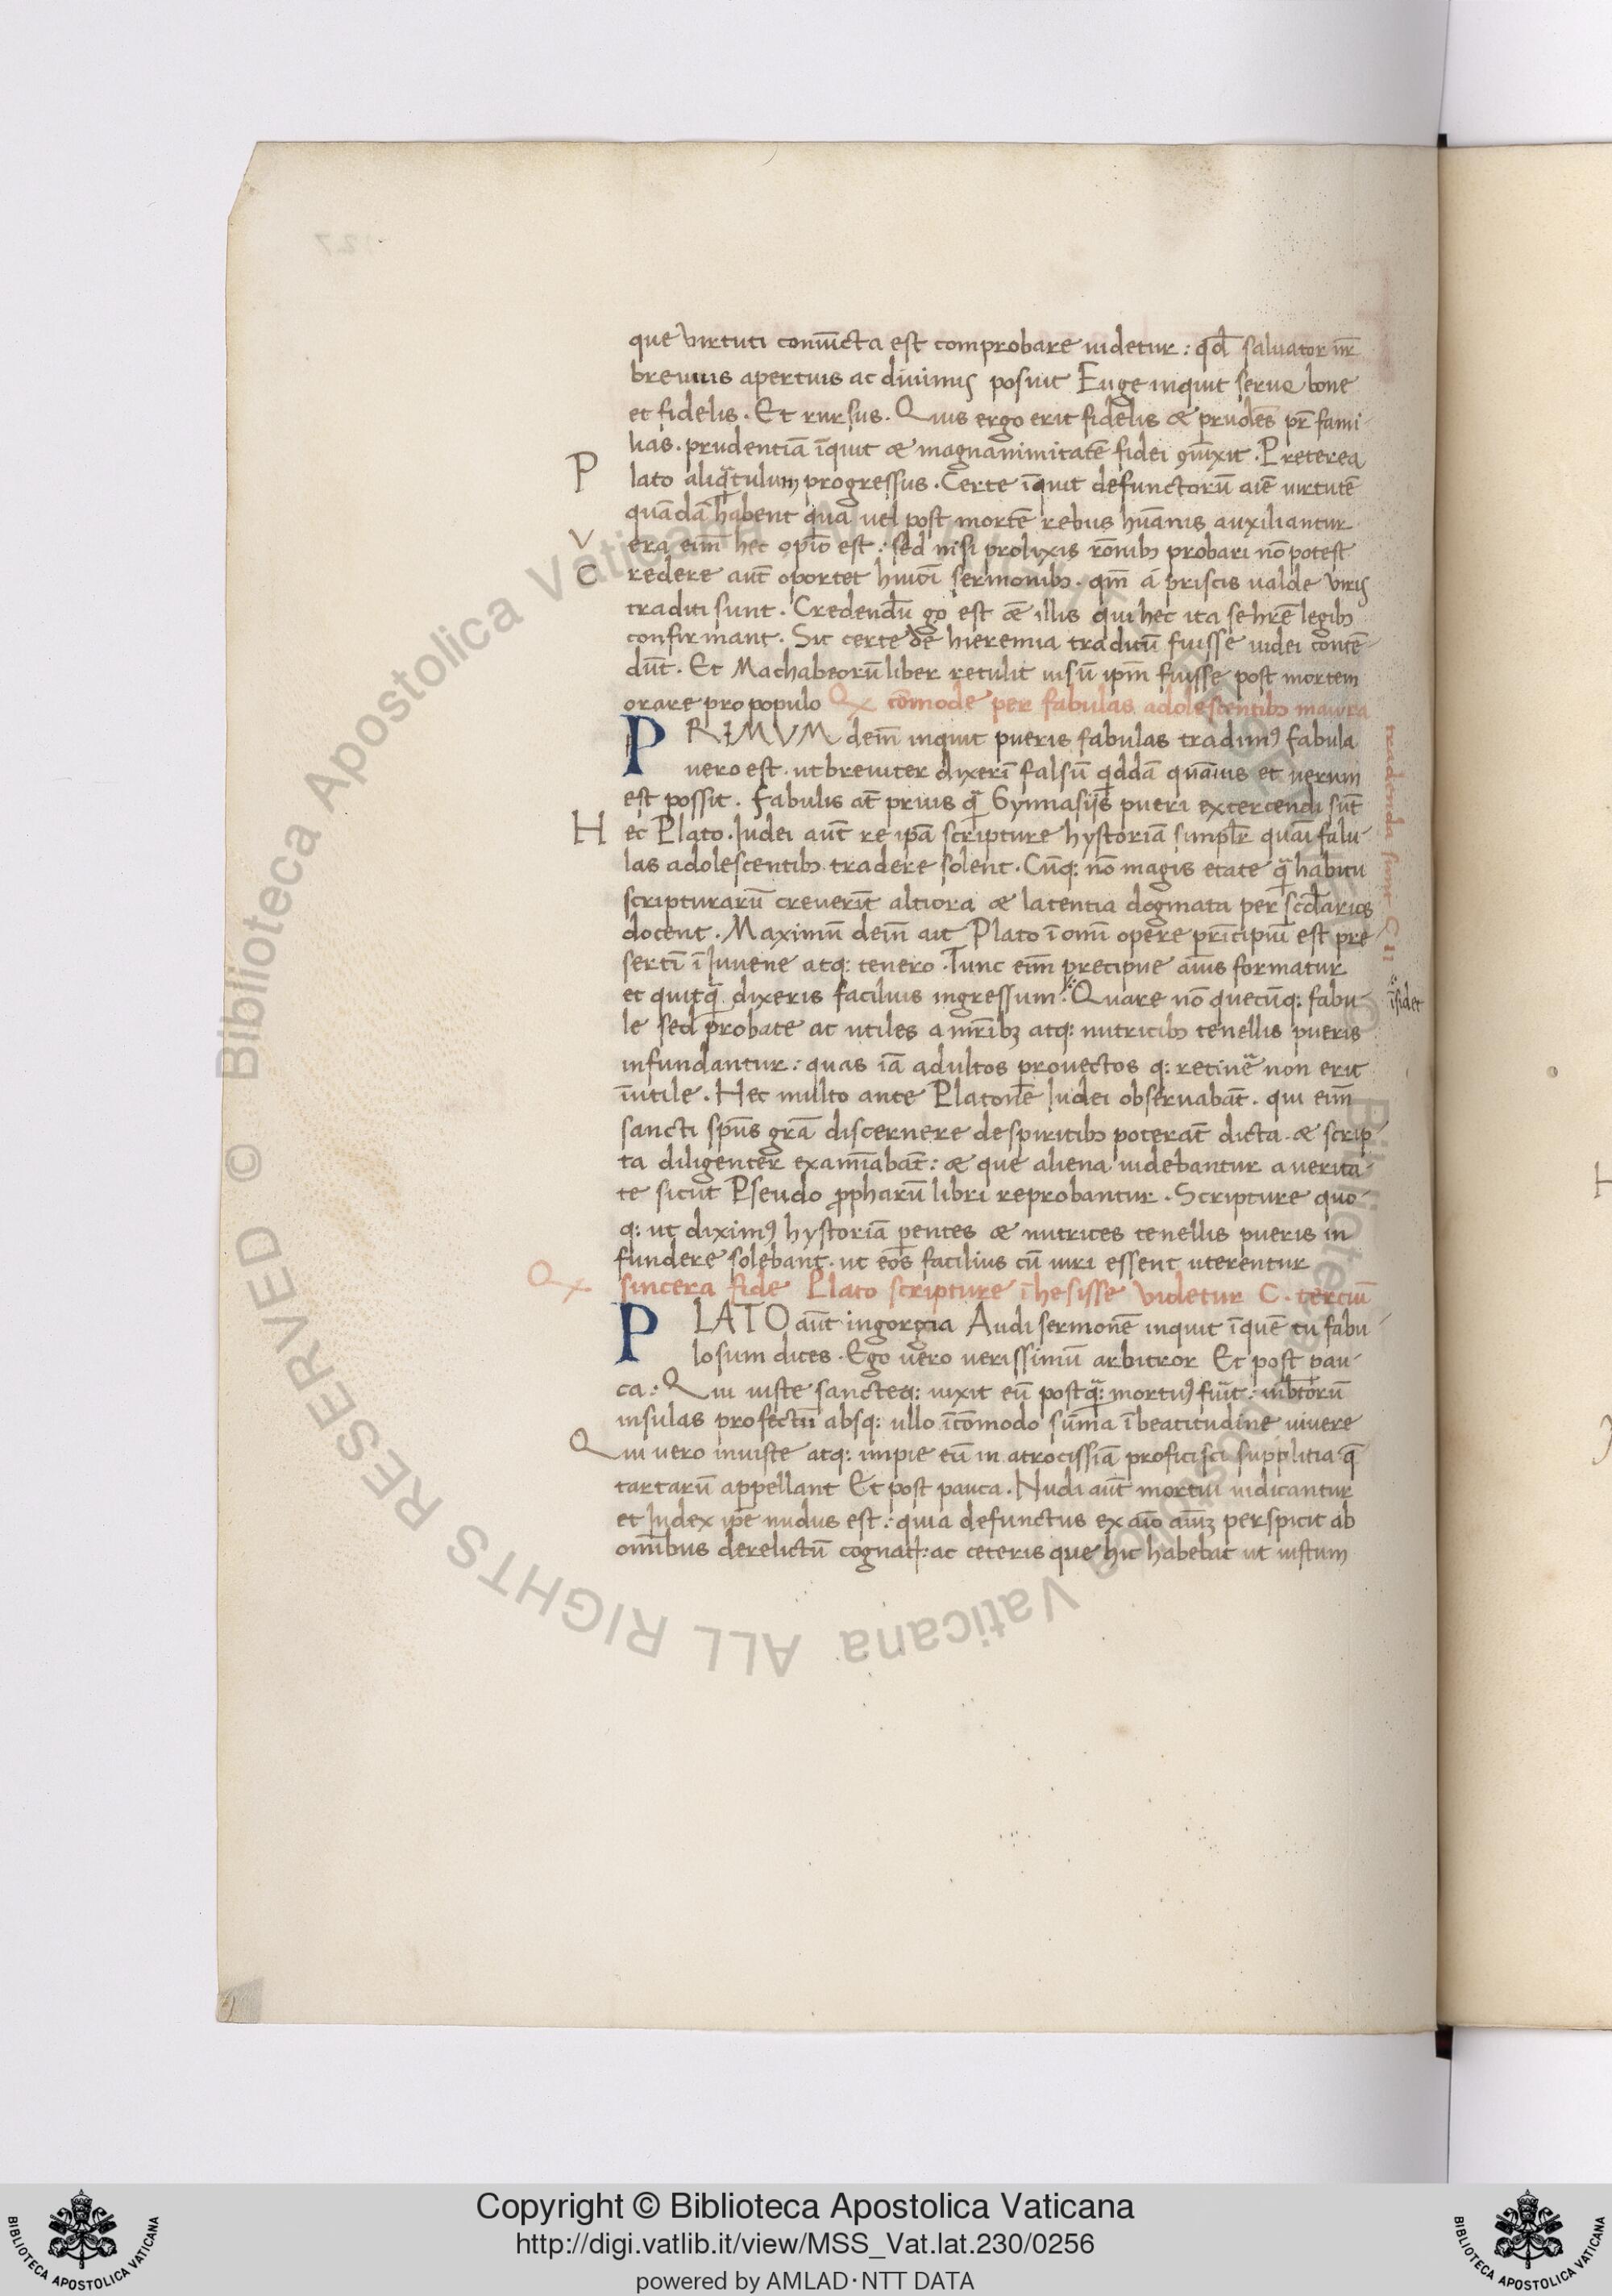 que virtuti coniūcta est comprobare uidetur: qd̄ saluator nr̄
breuius apertius ac diuinius posuit Euge inquit serue bone
et fidelis. Et rursus. Quis ergo erit fidelis & prudēs pr̄ fami
lias. prudentiā īquit & magnanimitatē fidei 9iūxit. Preterea
P lato aliqātulum progressus. Certe īquit defunctorū aīe uirtutē
quādā habent qua uel post mortē rebus hūanis auxiliantur
V era eīm hec opīo est: sed nisi prolixis rōnib; probari nō potest
C redere aūt oportet huiōi sermonib;. qm̄ a priscis ualde viris
traditi sunt. Credendū go est & illis qui hec ita se hr̄e legib;
confirmant. Sic certe de hieremia traditū fuisse uidei contē
dūt. Et Machabeorū liber retulit uisū ipm̄ fuisse post mortem
orare pro populo Qx cōmode per fabulas adolescentib; maiora
tradenda sunt C II
PRIMVM deīn inquit pueris fabulas tradim9 fabula
uero est. ut breuiter dixerī falsū qddā quāuis et uerum
est possit. Fabulis at̄ prius q̄ Gymnasiis pueri excercendi sūt
H ec Plato. Iudei aūt re ipa scripture hystoriā simplr̄ quāi fabu
las adolescentib; tradere solent. Cūq: nō magis etate q̄ habitu
scripturarū creuerīt altiora & latentia dogmata per scd̄arios
docent. Maximū deīn ait Plato ī omī opere prīcipiū est pre
sertī ī Iuuene atq: tenero. Tunc eīm precipue aīus formatur
et quitq̄ dixeris facilius ingressum. Quare nō quecūq: fabu
īsidet
le sed probate ac utiles a mr̄ib; atq: nutricib; tenellis pueris
infundantur: quas iā adultos prouectos q: retinē non erit
īutile. Hec multo ante Platonē Iudei obseruabāt. qui eīm
sancti spūs grā discernere de spiritib; poterāt dicta & scrip
ta diligenter examīabāt: & que aliena uidebantur a uerita
te sicut Pseudo ppharū libri reprobantur. Scripture quo
q: ut dixim9 hystoriā pentes & nutrices tenellis pueris in
fundere solebant. ut eos facilius cū uiri essent uterentur
Qx sincera fide Plato scripture īhesisse videtur C. terciū
PLATO aūt in gorgia Audi sermonē inquit īquē tu fabu
losum dices. Ego uero uerissimū arbitror Et post pau
ca: Qui iuste sancteq: uixit eū postq̄ mortu9 fuīt: in btōrū
insulas profectū absq: ullo īcōmodo sūma ī beatitudine uiuere
Qui uero iniuste atq: impie eū in atrocissīa proficisci supplitia q̄
tartarū appellant Et post pauca. Nudi aūt mortui iudicantur
et Iudex ipe nudus est: quia defunctus ex aīo aīuz perspicit ab
omībus derelictū cognatis: ac ceteris que hic habebat ut iustum
© Biblioteca Apostolica Vaticana ALL RIGHTS RESERVED
Copyright © Biblioteca Apostolica Vaticana
http://digi.vatlib.it/view/MSS_Vat.lat.230/0256
powered by AMLAD·NTT DATA
BIBLIOTECA APOSTOLICA VATICANA
BIBLIOTECA APOSTOLICA VATICANA